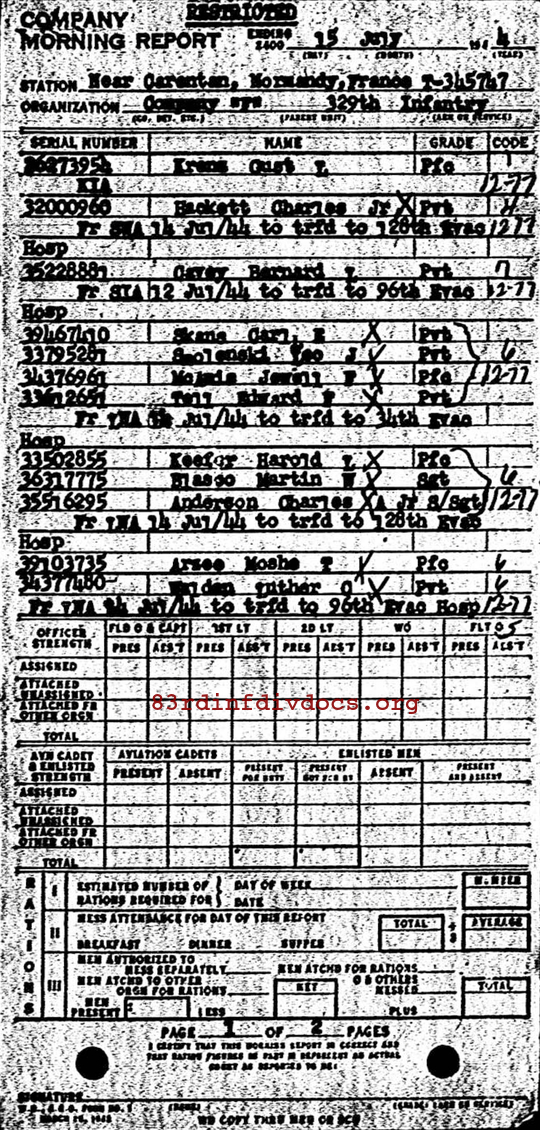 COMPANY
MORNING REPORT
RESTRICTED
ENDING 2400 15 July 4
(DAY) (MONTH) (YEAR)
STATION Near Carentan, Normandy, France T-345747
ORGANIZATION Company 329th Infantry
(CO. DET. ETC.) (PARENT UNIT) (ARM OR SERVICE)
SERIAL NUMBER NAME GRADE CODE
36273954 Gust L Pfc 1
KIA 12-77
32000960 Hackett Charles Jr X Pvt 4
Fr SWA 14 Jul/44 to trfd to 128th Evac 12-77
Hosp
35228881 Bernard Pvt 7
Fr SIA 12 Jul/44 to trfd to 96th Evac 12-77
Hosp
39467410 Carl E X Pvt
33795281 Smolenski Leo J Pvt 6
34376961 Jewell F X Pfc 12-77
33612651 Edward F X Pvt
Fr LWA Jul/44 to trfd to 34th Evac
Hosp
33502855 Keefer Harold L X Pfc
36317775 Blasco Martin W X Sgt 6
35516295 Anderson Charles X A Jr S/Sgt 12-77
Fr LWA 14 Jul/44 to trfd to 128th Evac
Hosp
39103735 Arzee Moshe T Pfc 6
34377480 Luther O X Pvt 6
Fr LWA 14 Jul/44 to trfd to 96th Evac Hosp 12-77
OFFICER STRENGTH FLD O & CAPT 1ST LT 2D LT WO FLT O
PRES ABS'T PRES ABS'T PRES ABS'T PRES ABS'T PRES ABS'T
ASSIGNED
ATTACHED UNASSIGNED
ATTACHED FR OTHER ORGN
83rdinfdivdocs.org
TOTAL
AVN CADET & ENLISTED STRENGTH AVIATION CADETS ENLISTED MEN
PRESENT ABSENT PRESENT FOR DUTY PRESENT NOT FOR DY ABSENT PRESENT AND ABSENT
ASSIGNED
ATTACHED UNASSIGNED
ATTACHED FR OTHER ORGN
TOTAL
RATIONS
I ESTIMATED NUMBER OF RATIONS REQUIRED FOR DAY OF WEEK DATE NUMBER
II MESS ATTENDANCE FOR DAY OF THIS REPORT TOTAL ÷ 3 AVERAGE
BREAKFAST DINNER SUPPER
III MEN AUTHORIZED TO MESS SEPARATELY MEN ATCHD FOR RATIONS
MEN ATCHD TO OTHER ORGN FOR RATIONS NET O & OTHERS MESSED TOTAL
MEN PRESENT LESS PLUS
PAGE 1 OF 2 PAGES
I CERTIFY THAT THIS MORNING REPORT IS CORRECT AND
THAT RATION FIGURES IN PART III REPRESENT AN ACTUAL
COUNT AS REPORTED TO ME:
SIGNATURE
W.D., A.G.O. FORM NO. 1
MARCH 15, 1943
(NAME) (GRADE) (ARM OR SERVICE)
WD COPY THRU MRU OR SCU